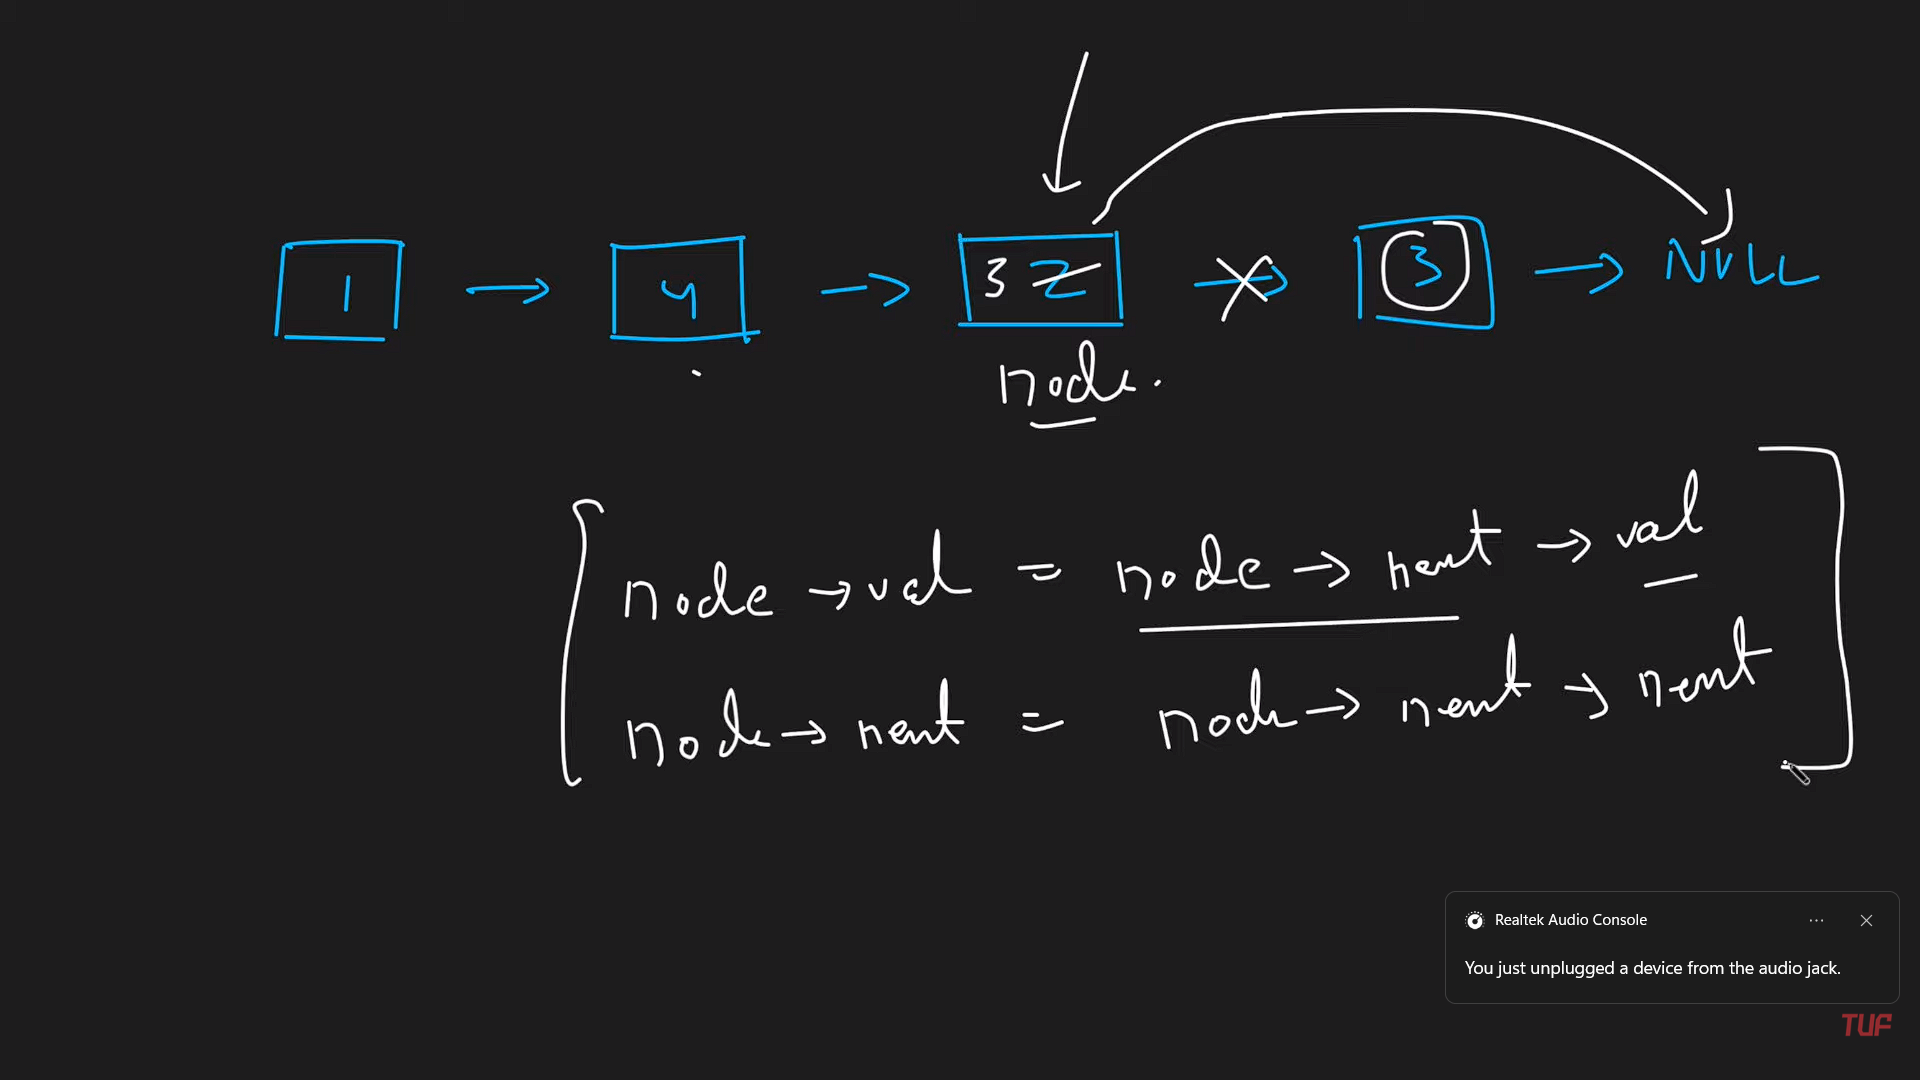 1 → 4 → 3 2 → 3 → NULL
node.
node → val = node → next → val
node → next = node → next → next
Realtek Audio Console
You just unplugged a device from the audio jack.
TUF